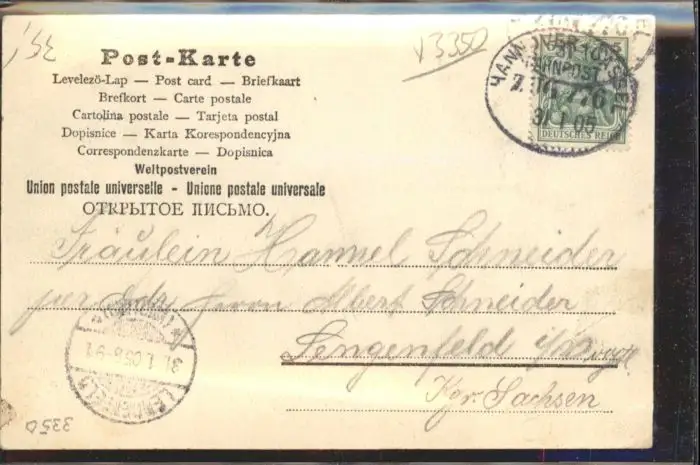 Post-Karte
Levelező-Lap — Post card — Briefkaart
Brefkort — Carte postale
Cartolina postale — Tarjeta postal
Dopisnice — Karta Korespondencyjna
Correspondenzkarte — Dopisnica
Weltpostverein
Union postale universelle - Unione postale universale
ОТКРЫТОЕ ПИСЬМО.
v3350
HANNOVER
BAHNPOST
31 1 05
DEUTSCHES REICH
Fräulein Hannel Schneider
per Herrn Albert Schneider
Lengenfeld i/
Kgr. Sachsen
31.1.05.8-9
LENGENFELD
3350